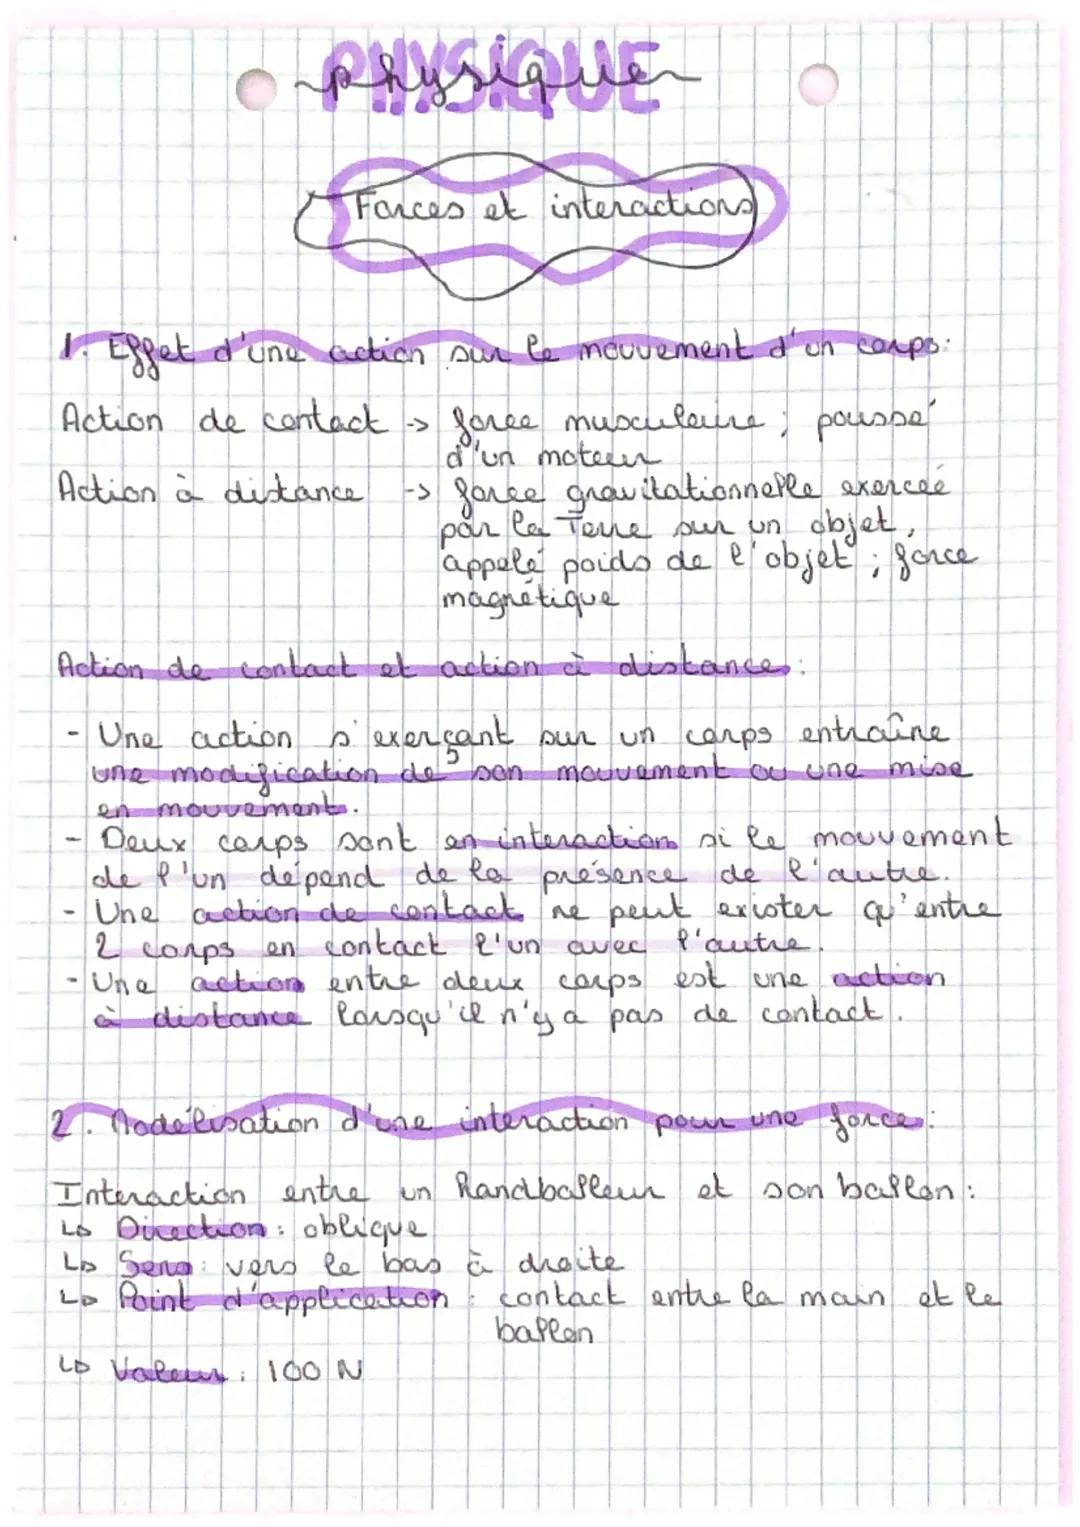 PHYSIQUE
physique
Forces et interactions
1. Effet d'une action sur le mouvement d'un corps:
Action de contact -> force musculaire ; poussé
d'un moteur
Action à distance -> force gravitationnelle exercée
par la Terre sur un objet,
appelé poids de l'objet ; force
magnétique
Action de contact et action à distance :
- Une action s'exerçant sur un corps entraîne
une modification de son mouvement ou une mise
en mouvement.
- Deux corps sont en interaction si le mouvement
de l'un dépend de la présence de l'autre.
- Une action de contact ne peut exister qu'entre
2 corps en contact l'un avec l'autre.
- Une action entre deux corps est une action
à distance lorsqu'il n'y a pas de contact.
2. Modélisation d'une interaction pour une force :
Interaction entre un handballeur et son ballon :
↳ Direction : oblique
↳ Sens : vers le bas à droite
↳ Point d'application : contact entre la main et le
ballon
↳ Valeur : 100 N